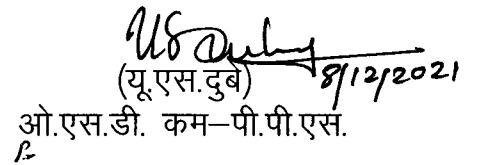 US Dubey
8/12/2021
(यू.एस.दुबे)
ओ.एस.डी. कम–पी.पी.एस.